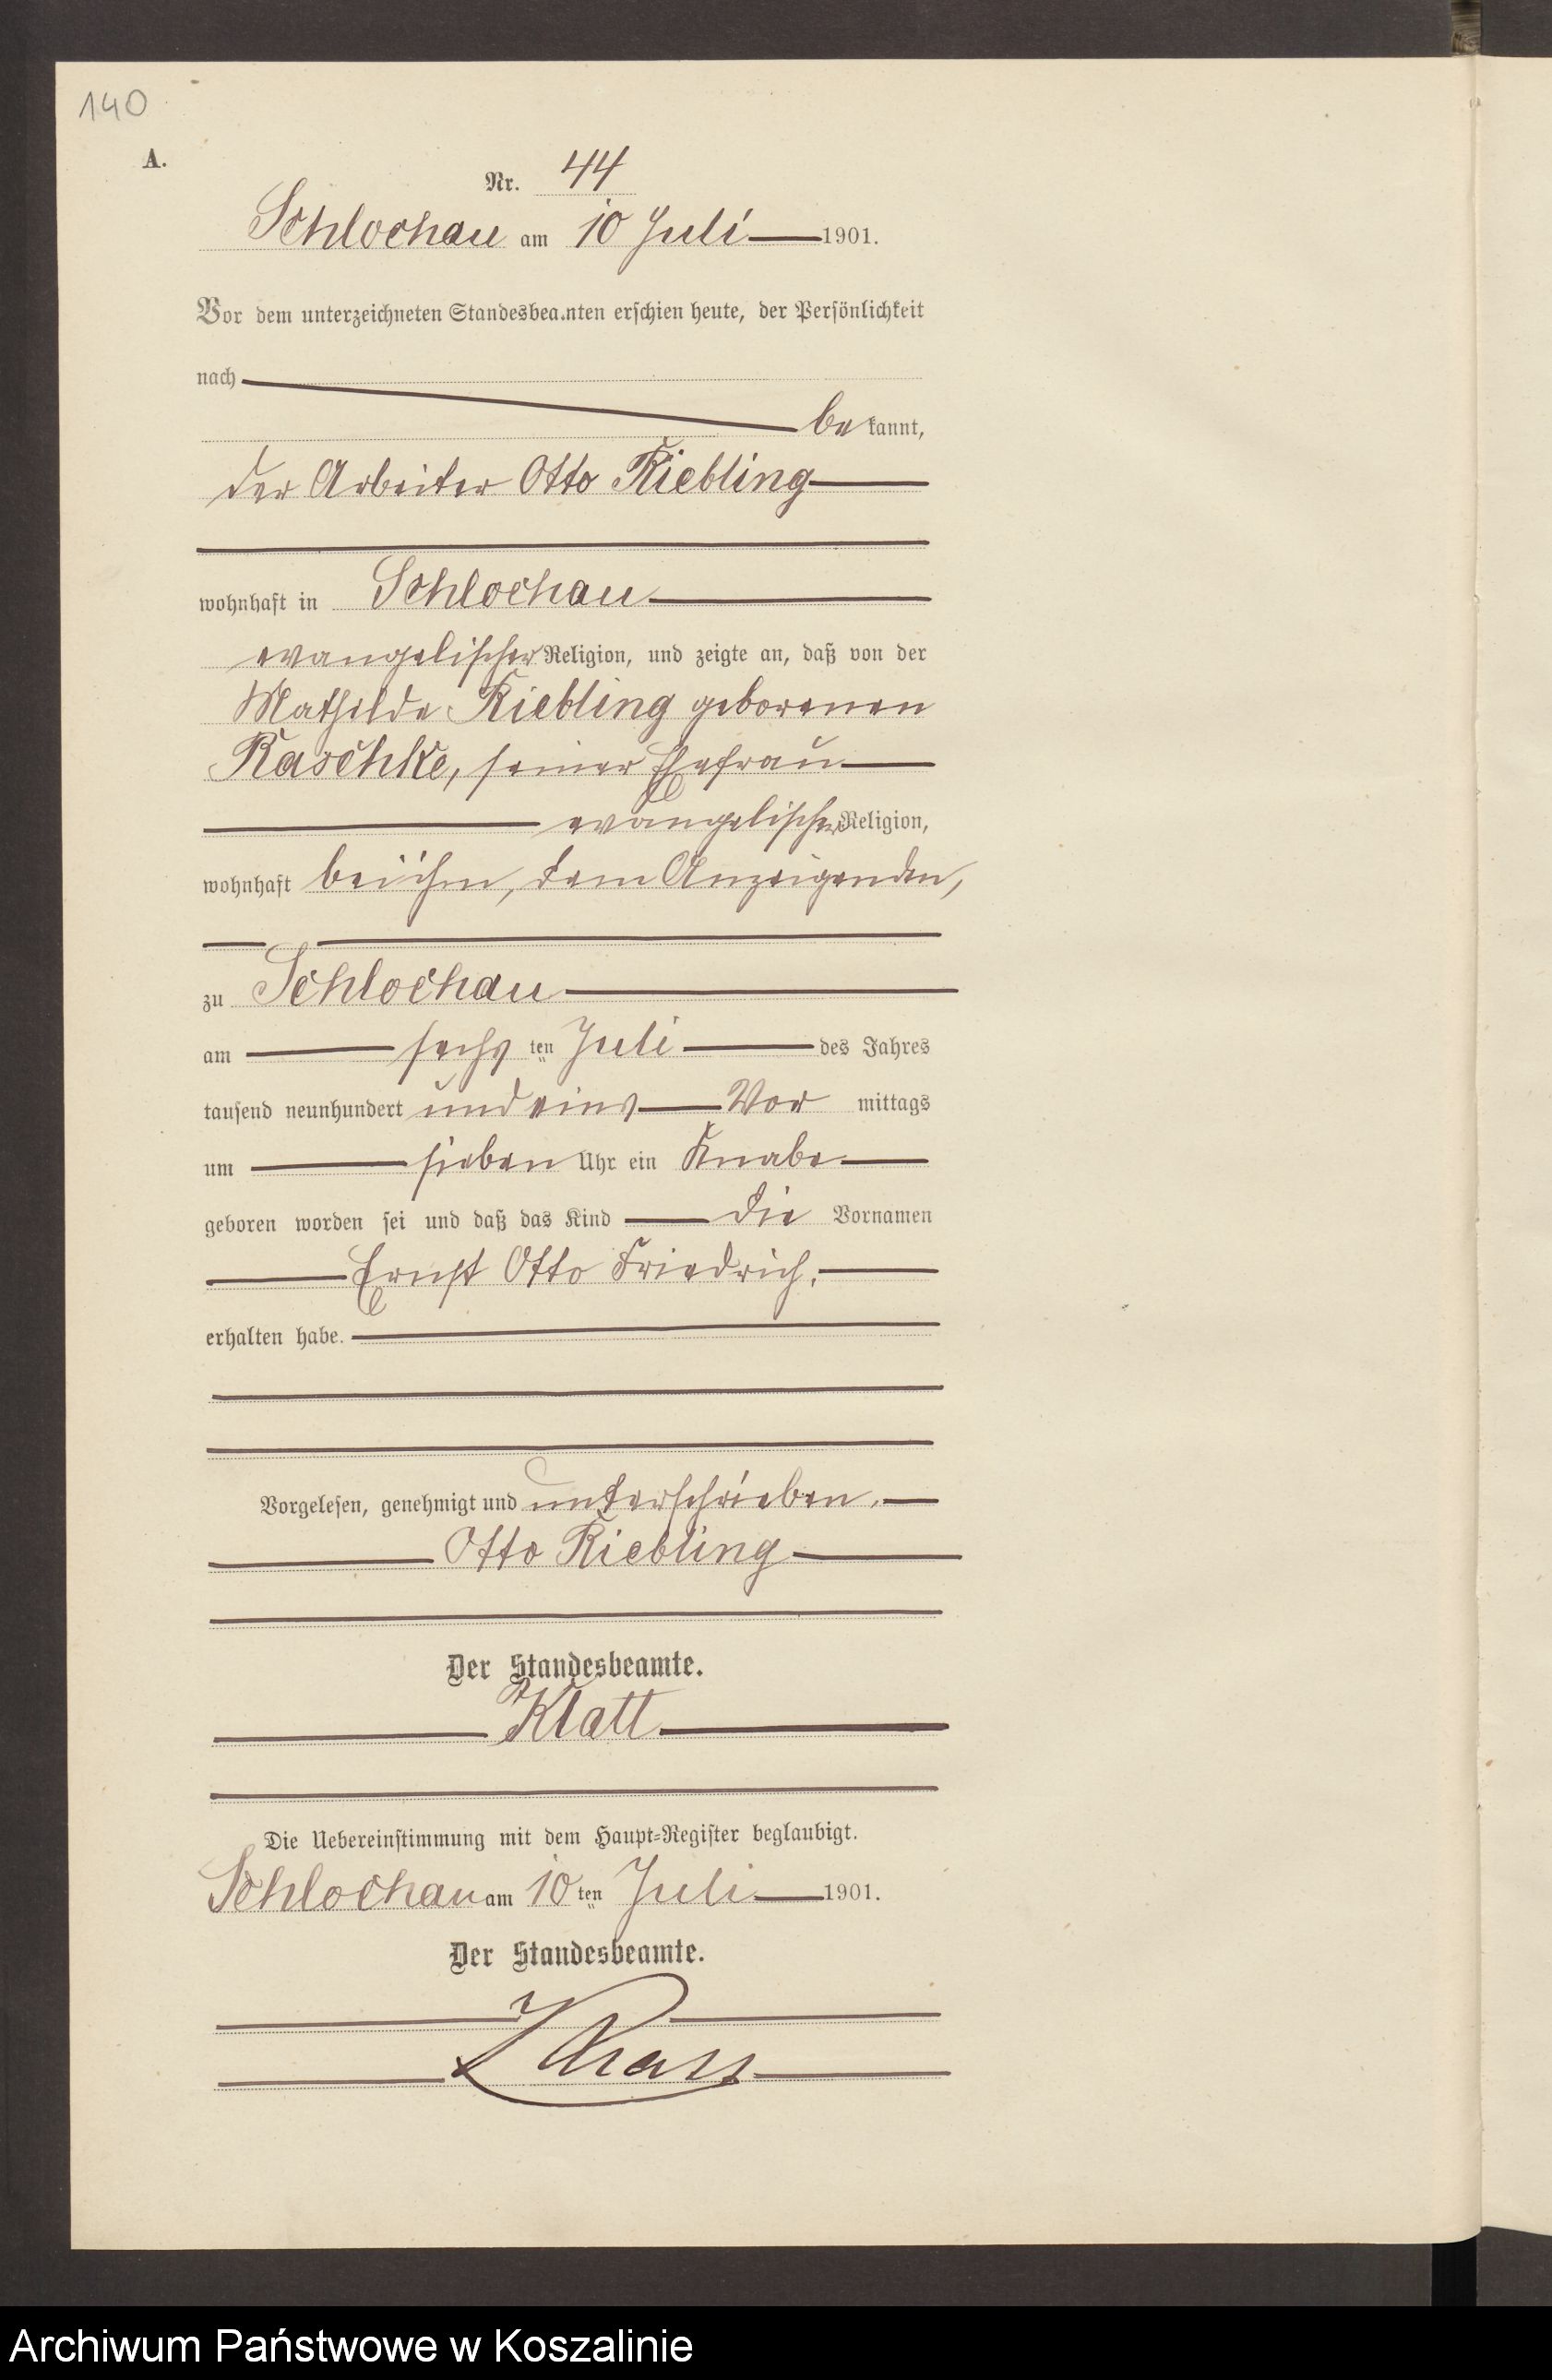 140
A.
Nr. 44
Schlochau am 10 Juli 1901.
Vor dem unterzeichneten Standesbeamten erschien heute, der Persönlichkeit
nach
bekannt,
der Arbeiter Otto Riebling
wohnhaft in Schlochau
evangelischer Religion, und zeigte an, daß von der
Mathilde Riebling geborenen
Raschke, seiner Ehefrau
evangelischer Religion,
wohnhaft bei ihm, dem Anzeigenden,
zu Schlochau
am sechsten Juli des Jahres
tausend neunhundert und eins Vormittags
um sieben Uhr ein Knabe
geboren worden sei und daß das Kind die Vornamen
Ernst Otto Friedrich.
erhalten habe.
Vorgelesen, genehmigt und unterschrieben.
Otto Riebling
Der Standesbeamte.
Klatt
Die Uebereinstimmung mit dem Haupt-Register beglaubigt.
Schlochau am 10ten Juli 1901.
Der Standesbeamte.
Archiwum Państwowe w Koszalinie